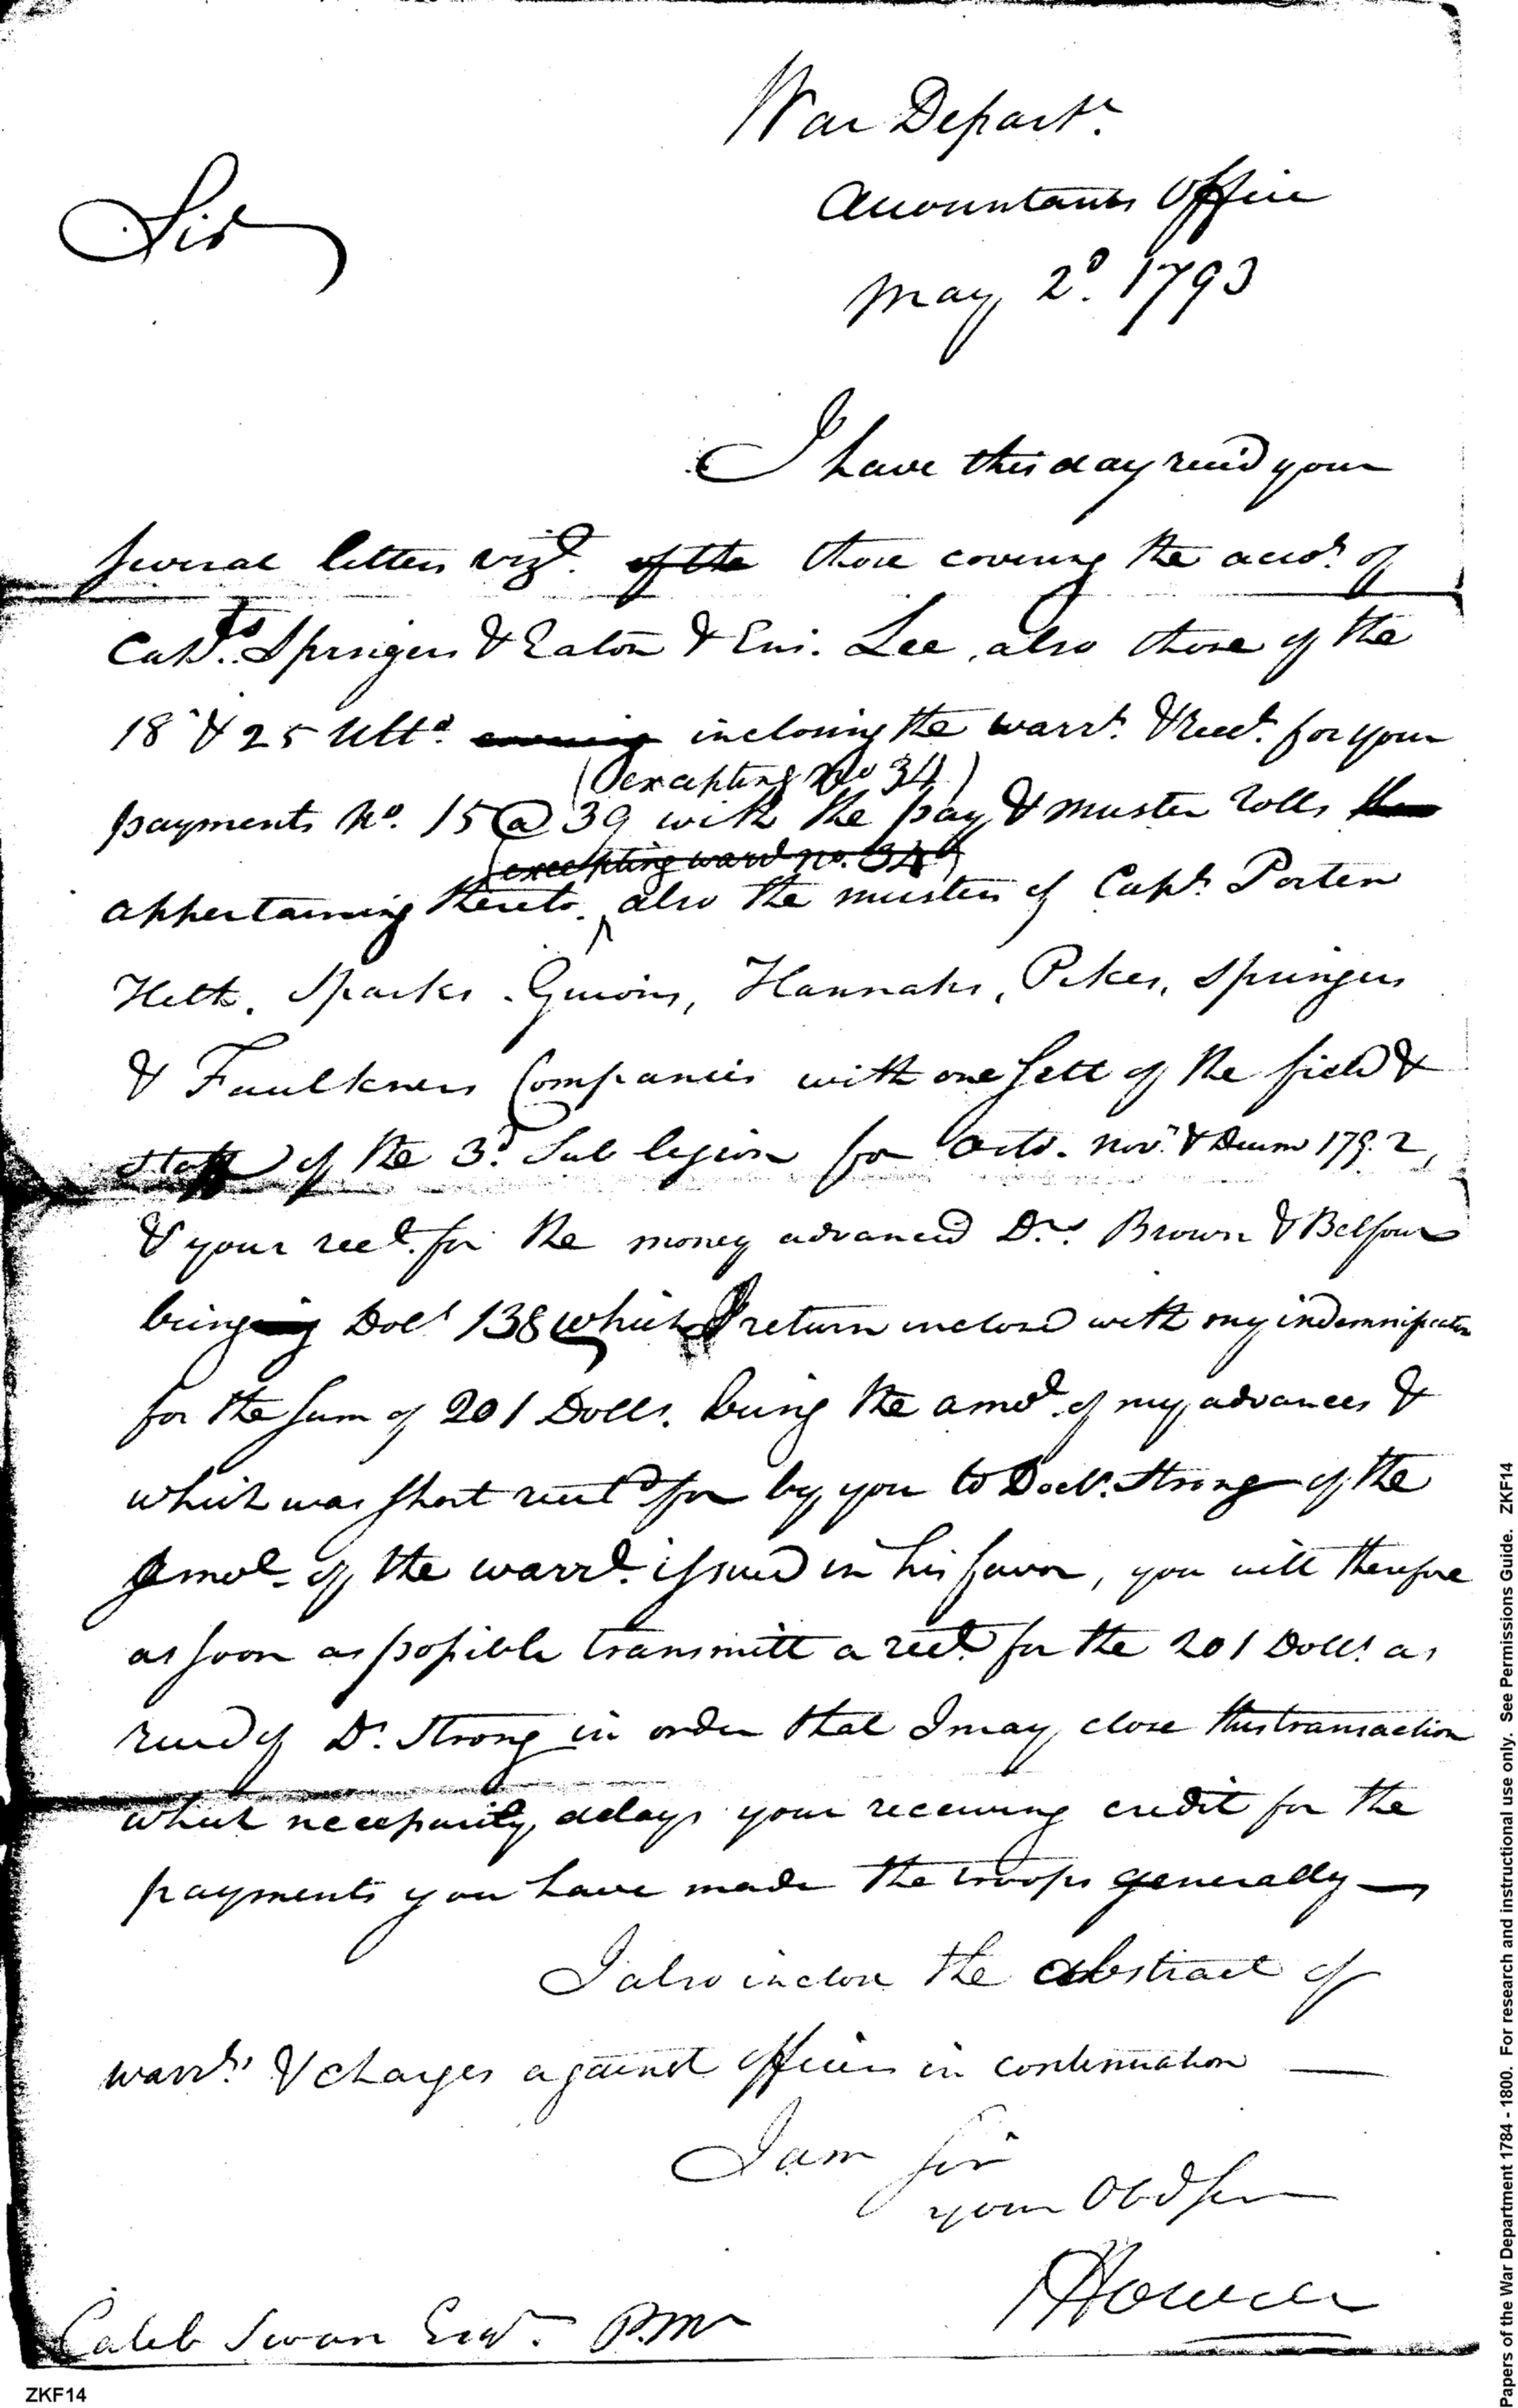 War Depart.
Accountants Office
May 2d. 1793
Sir
I have this day recd your
several letters vizt. of the those covering the accots. of
Capts. Springers & Eaton & Ens. Lee, also those of the
18 & 25 Ulto. inclosing the warrts. & Rects. for your
(excepting No 34)
payments No. 15 @ 39 with the pay & muster rolls the
(excepting warrt no. 34)
appertaining thereto. also the musters of Capts. Porter
Heth, Sparks, Guions, Hannahs, Pikes, Springers
& Faulkners Companies with one sett of the field &
staff of the 3d. Sub legion for Octo. Novr. & Decem 1792,
& your rect. for the money advanced Drs. Brown & Belfour
being Dolls 138 which I return inclosed with my indemnification
for the sum of 201 Dolls. being the amot. of my advances &
which was short rectd for by you to Doctr. Strong of the
Amot. of the warrt. issued in his favor, you will therefore
as soon as possible transmitt a rect. for the 201 Dolls. as
recd of Dr. Strong in order that I may close this transaction
which necessarily delays your receiving credit for the
payments you have made the troops generally —
I also inclose the abstract of
warrts. & charges against officers in continuation —
I am Sir
your Obd Ser
J Howell
Caleb Swan Esqr. P.Mr
ZKF14
Papers of the War Department 1784 - 1800. For research and instructional use only. See Permissions Guide. ZKF14